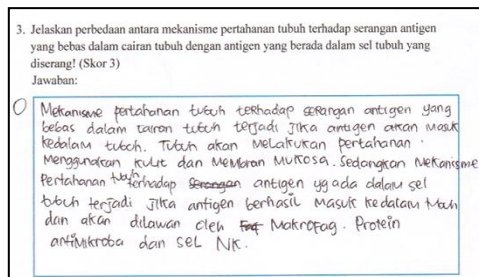 3. Jelaskan perbedaan antara mekanisme pertahanan tubuh terhadap serangan antigen
yang bebas dalam cairan tubuh dengan antigen yang berada dalam sel tubuh yang
diserang! (Skor 3)
Jawaban:
Mekanisme pertahanan tubuh terhadap serangan antigen yang
bebas dalam cairan tubuh terjadi jika antigen akan masuk
kedalam tubuh. Tubuh akan melakukan pertahanan.
Menggunakan kulit dan Membran Mukosa. Sedangkan Mekanisme
Pertahanan tubuh terhadap serangan antigen yg ada dalam sel
tubuh terjadi jika antigen berhasil masuk kedalam tubuh
dan akan dilawan oleh Makrofag. Protein
antimikroba dan sel NK.